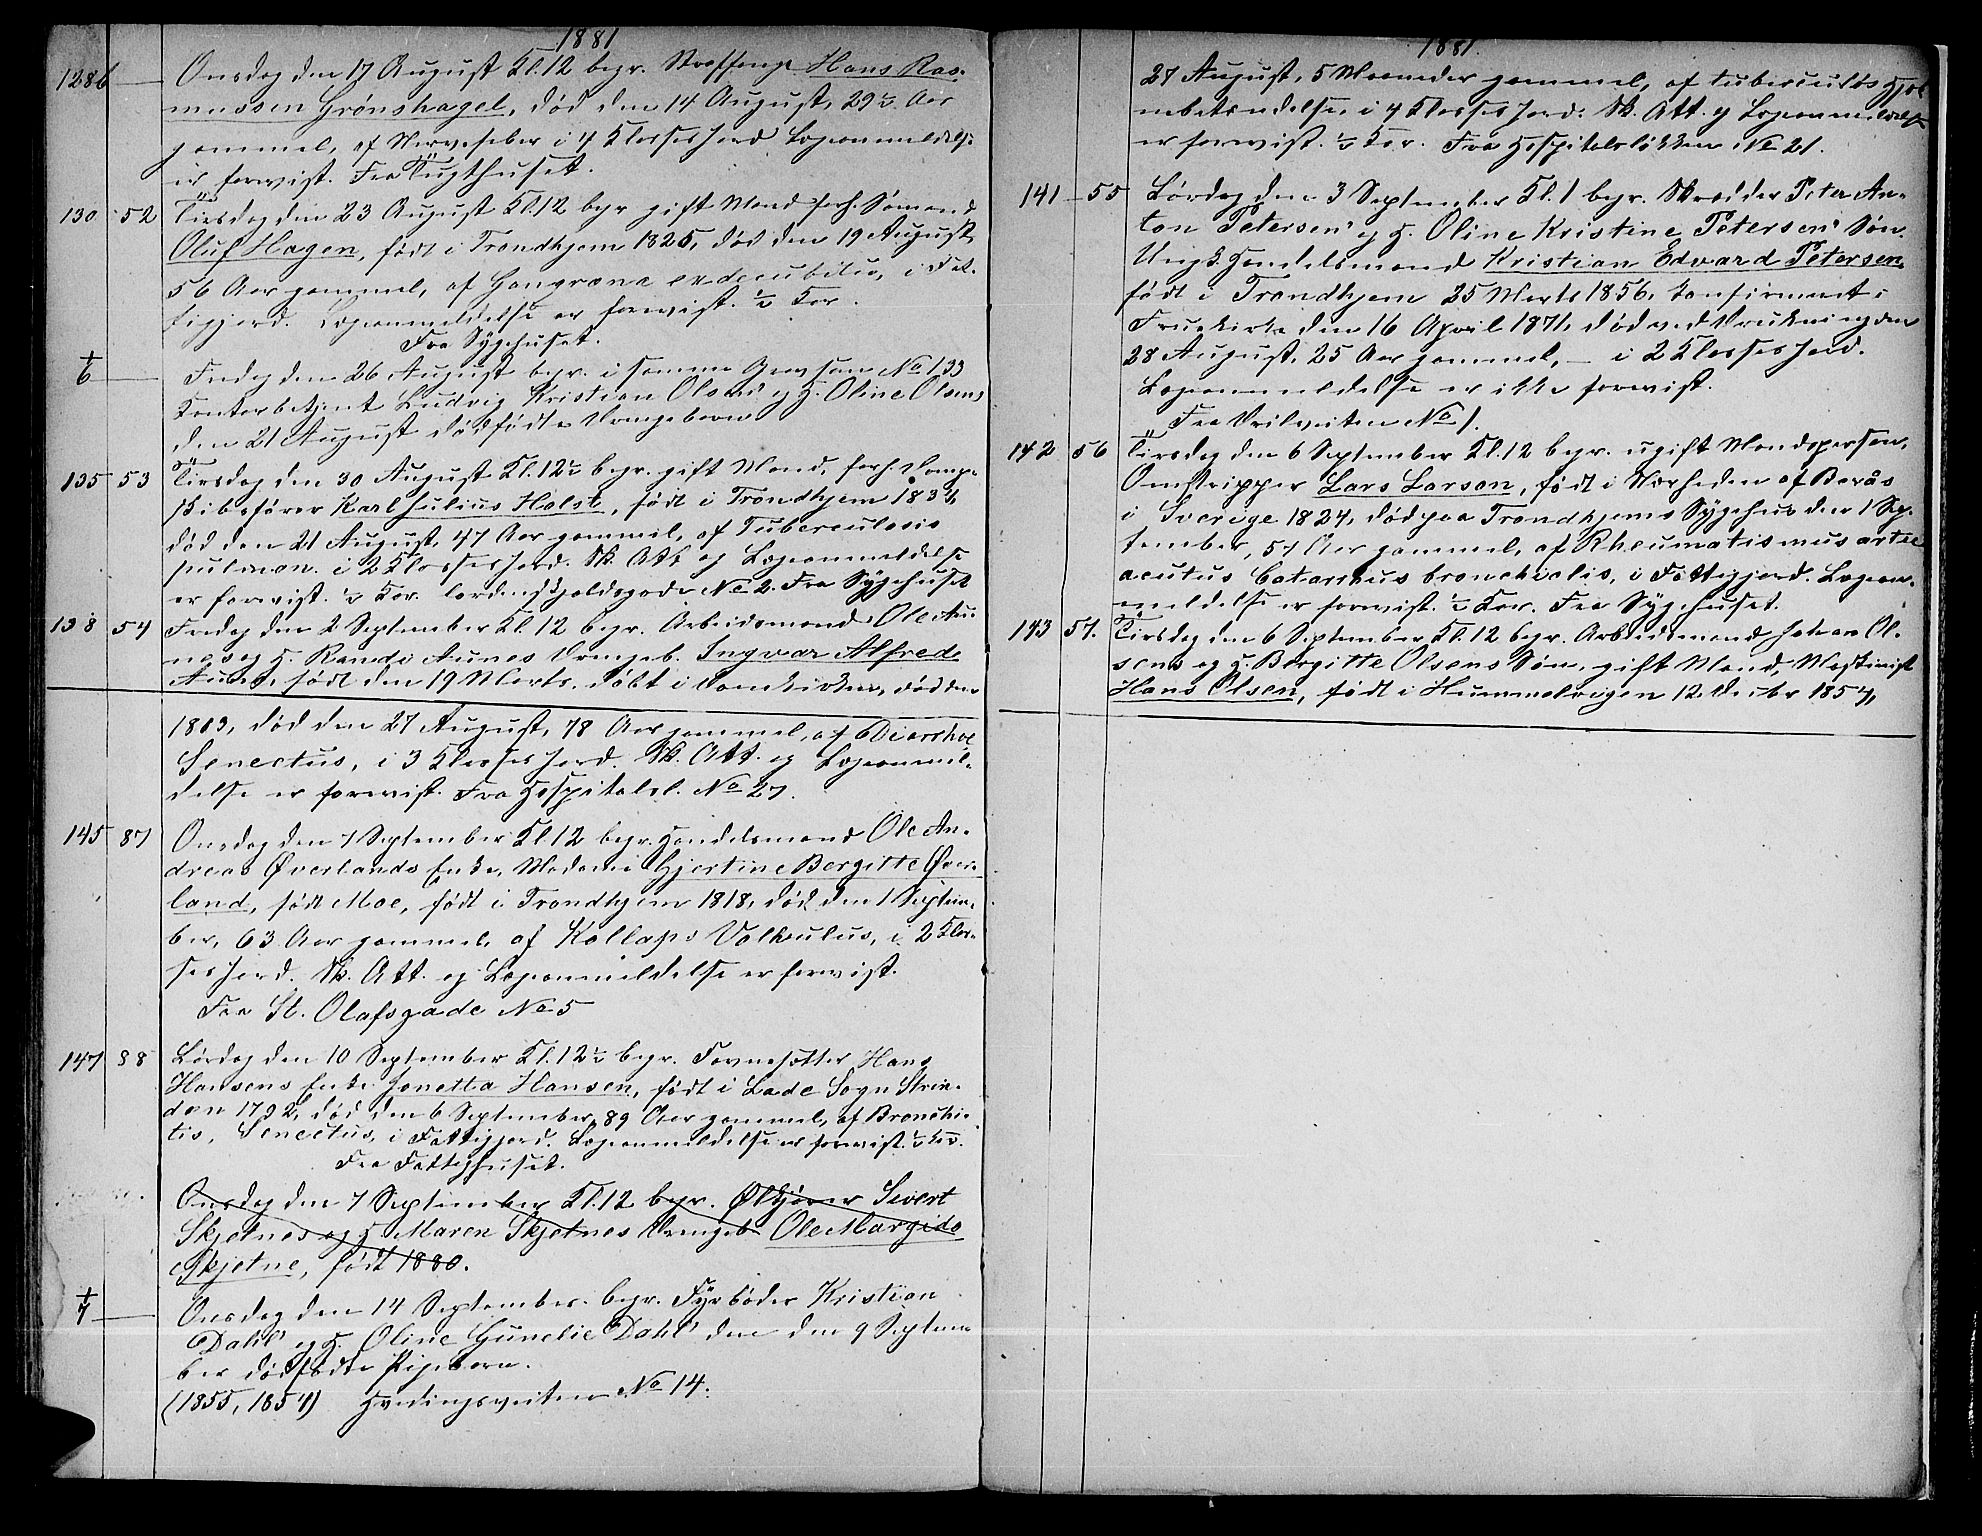 1881
128b Onsdag den 17 August Kl. 12 begr. Straffange Hans Ras-
mussen Grønshagel, død den 14 August, 29½ Aar
gammel, af Nervefeber i 4 Klasses Jord Lægeanmeldelse
er forevist. Fra Tugthuset.
130 52 Tirsdag den 23 August Kl. 12 begr. gift Mand forh. Sømand
Oluf Hagen, født i Trondhjem 1825, død den 19 August,
56 Aar gammel, af Gangræna ex decubitu, i Fat-
tigjord. Lægeanmeldelse er forevist. ½ Kor.
Fra Sygehuset.
+
6 Fredag den 26 August begr. i samme Grav som No 133
Kontorbetjent Ludvig Kristian Olsens og H. Oline Olsens
den 21 August dødfødte Drengebarn
135 53 Tirsdag den 30 August Kl. 12½ begr. gift Mand, forh. Damp-
skibsfører Karl Julius Holst, født i Trondhjem 1834,
død den 21 August, 47 Aar gammel, af Tuberculosis
pulmon. i 2 Klasses Jord. Sk. Att. og Lægeanmeldelse
er forevist. ½ Kor. Tordenskjoldsgade No 2. Fra Sygehuset
138 54 Fredag den 2 September Kl. 12 begr. Arbeidsmand Ole Au-
nes og H. Randi Aunes Drengeb. Ingvar Alfred
Aune, født den 19 Marts, døbt i Domkirken, død den
1803, død den 27 August, 78 Aar gammel, af Diarrhoe
Senectus, i 3 Klasses Jord. Sk. Att. og Lægeanmel-
delse er forevist. Fra Hospitalsl. No 27.
145 87 Onsdag den 7 September Kl. 12 begr. Handelsmand Ole An-
dreas Øverlands Enke, Madame Gjertine Bergitte Øver-
land, født Moe, født i Trondhjem 1818, død den 1 Septem-
ber, 63 Aar gammel, af Kollaps Volvulus, i 2 Klas-
ses Jord. Sk. Att. og Lægeanmeldelse er forevist.
Fra St. Olafsgade No 5
147 88 Lørdag den 10 September Kl. 12½ begr. Favnesætter Hans
Hansens Enke Jonetta Hansen, født i Lade Sogn Strin-
den 1792, død den 6 September, 89 Aar gammel, af Bronchi-
tis, Senectus, i Fattigjord. Lægeanmeldelse er forevist. ½ Kor.
Fra Fattighuset.
Onsdag den 7 September Kl. 12 begr. Ølkjører Sivert
Skjetnes og H. Maren Skjetnes Drengeb. Ole Margido
Skjetne, født 1880.
+
7 Onsdag den 14 September begr. Fyrbøder Kristian
Dahl' og H. Oline Gunelie Dahl' den den 9 Septem-
ber dødfødte Pigebarn.
(1855, 1857) Hvedingsveiten No 14.
1881.
27 August, 5 Maaneder gammel, af tuberculøs Hjer-
nebetændelse, i 4 Klasses Jord. Sk. Att. og Lægeanmeldelse
er forevist. ½ Kor. Fra Hospitalsløkken No 21.
141 55 Lørdag den 3 September Kl. 1 begr. Skrædder Peter An-
ton Petersens og H. Oline Kristine Petersens Søn.
Ungk. Handelsmand Kristian Edvard Petersen,
født i Trondhjem 25 Marts 1856, konfirmeret i
Fruekirke den 16 April 1871, død ved Drukning den
28 August, 25 Aar gammel, — i 2 Klasses Jord.
Lægeanmeldelse er ikke forevist.
Fra Prilveiten No 1.
142 56 Tirsdag den 6 September Kl. 12 begr. ugift Mandsperson,
Omstripper Lars Larson, født i Nærheden af Borås
i Sverige 1824, død paa Trondhjems Sygehus den 1 Sep-
tember, 57 Aar gammel, af Rheumatismus artic
acutus Catarrhus bronchialis, i Fattigjord. Lægean-
meldelse er forevist. ½ Kor. Fra Sygehuset.
143 57. Tirsdag den 6 September Kl. 12 begr. Arbeidsmand Johan Ol-
sens og H. Birgitte Olsens Søn, gift Mand, Maskinist
Hans Olsen, født i Hummelvigen 12. Decbr 1857,